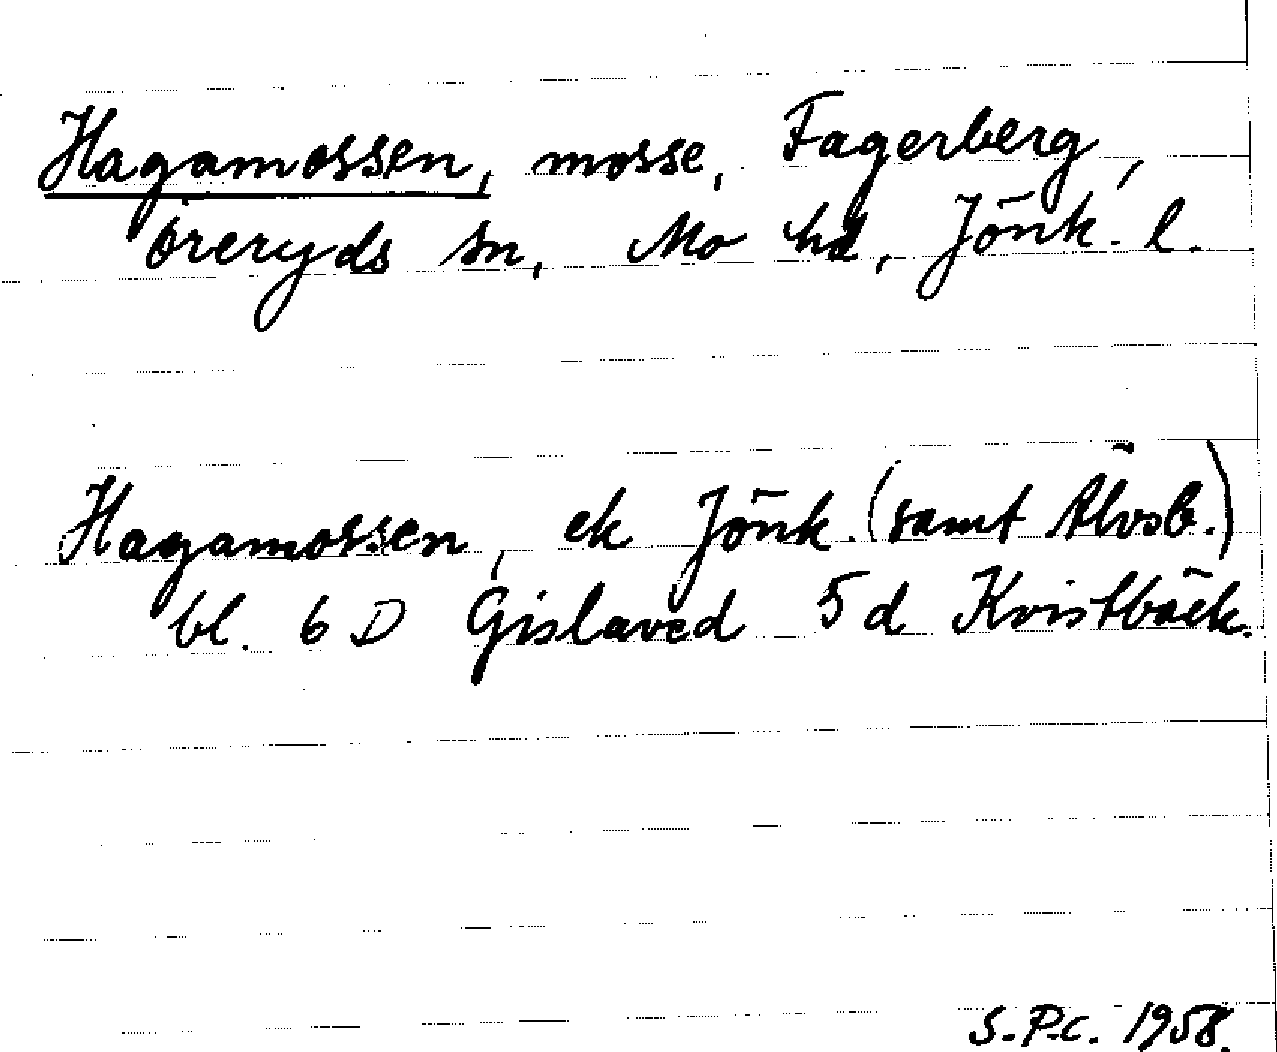 Hagamossen, mosse, Fagerberg,
Öreryds sn, Mo hd, Jönk. l.
Hagamossen, ek Jönk. (samt Älvsb.)
bl. 6 D Gislaved 5 d Kvistbäck.
S.P.c. 1958.